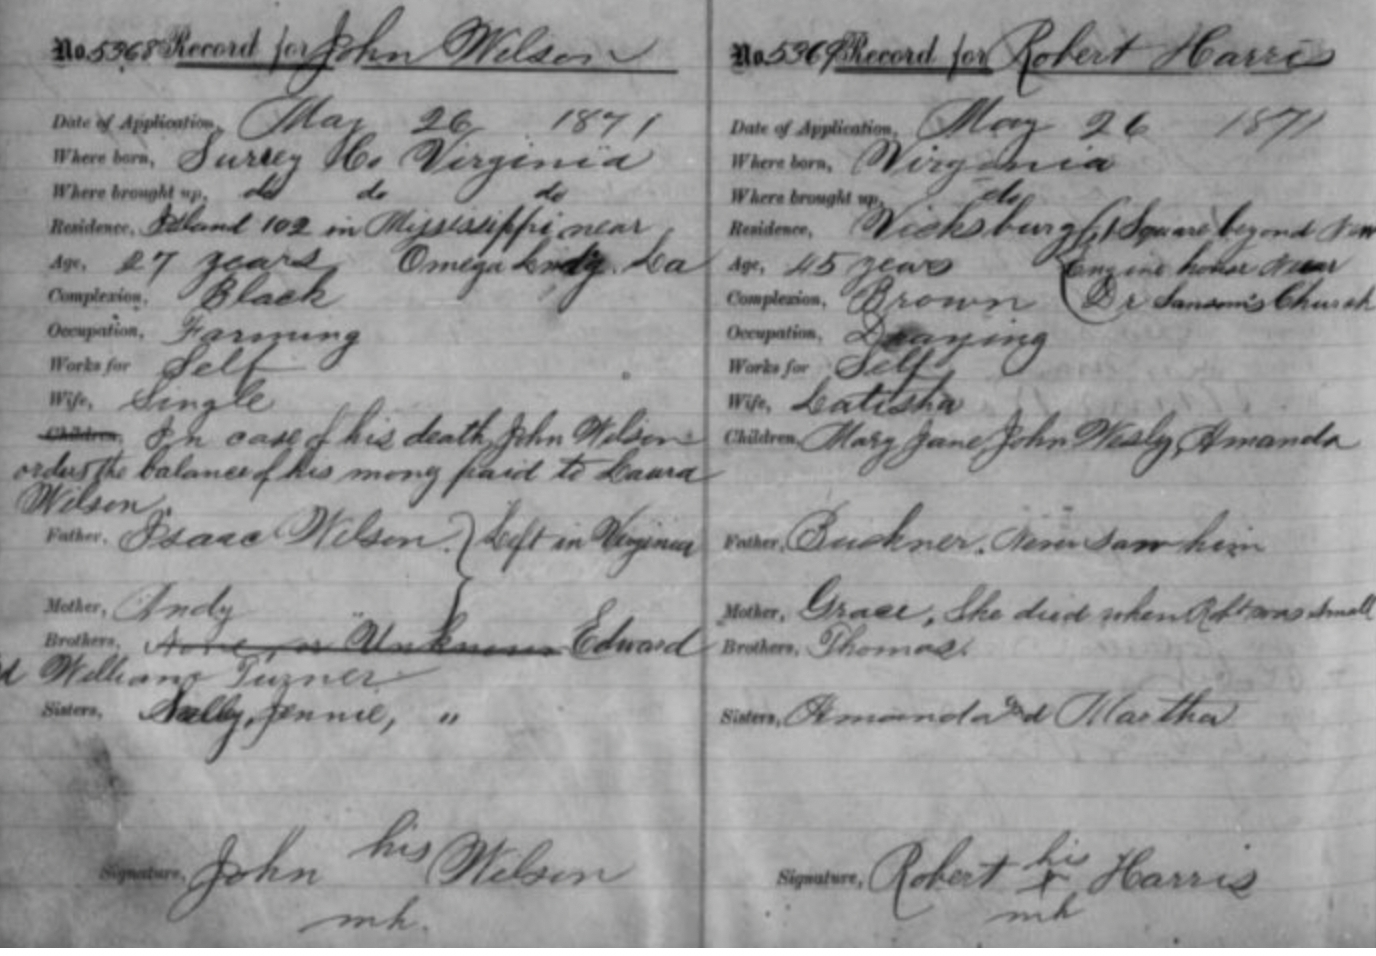 No. 5368 Record for John Wilson
Date of Application, May 26 1871
Where born, Surrey Co Virginia
Where brought up, do do do
Residence, Island 102 in Mississippi near
Age, 27 years Omega La
Complexion, Black
Occupation, Farming
Works for Self
Wife, Single
Children, In case of his death, John Wilson
orders the balance of his mony paid to Laura
Wilson.
Father, Isaac Wilson. } Left in Virginia
Mother, Andy
Brothers, None or Unknown Edward
William Turner
Sisters, Sally, Jennie, "
Signature, John his Wilson
mk.
No. 5369 Record for Robert Harris
Date of Application, May 26 1871
Where born, Virginia
Where brought up, do
Residence, Vicksburg (1 Square beyond New
Age, 45 years Engine house near
Complexion, Brown Dr Sansom's Church
Occupation, Draying
Works for Self
Wife, Latisha
Children, Mary Jane, John Wesly, Amanda
Father, Buckner. Never saw him
Mother, Grace, She died when Robt was small
Brothers, Thomas.
Sisters, Amanda and Martha
Signature, Robert his x Harris
mk